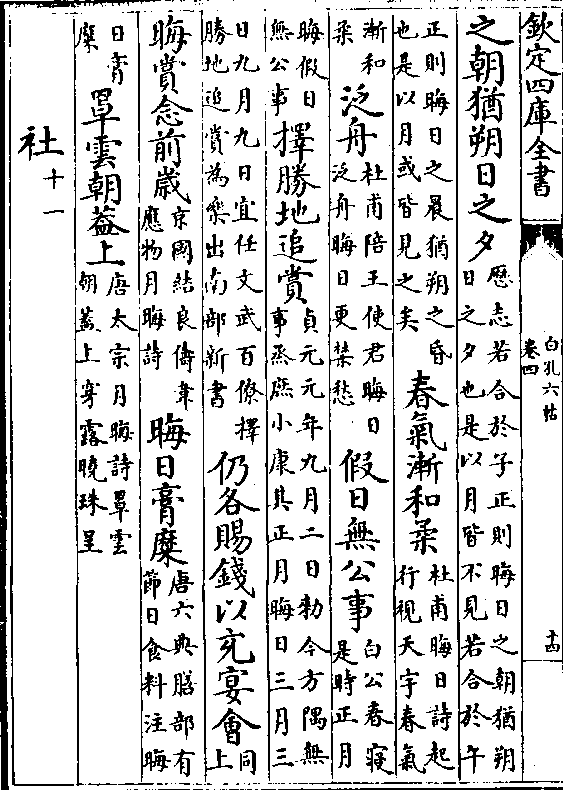 欽定四庫全書
白孔六帖
卷四
十四
之朝猶朔日之夕
歴志若合於子正則晦日之朝猶朔
日之夕也是以月皆不見若合於午
正則晦日之晨猶朔之昏
也是以月或皆見之矣
春氣漸和柔
杜甫晦日詩起
行視天宇春氣
漸和
柔
泛舟
杜甫陪王使君晦日
泛舟晦日更禁愁
假日無公事
白公春寢
是時正月
晦假日
無公事
擇勝地追賞
貞元元年九月二日勑今方隅無
事烝庶小康其正月晦日三月三
日九月九日宜任文武百僚擇
勝地追賞為樂出南部新書
仍各賜錢以充宴會
同
上
晦賞念前歲
京國結良儔韋
應物月晦詩
晦日膏糜
唐六典膳部有
節日食料注晦
日膏
糜
罩雲朝葢上
唐太宗月晦詩罩雲
朝葢上穿露曉珠呈
社
十一